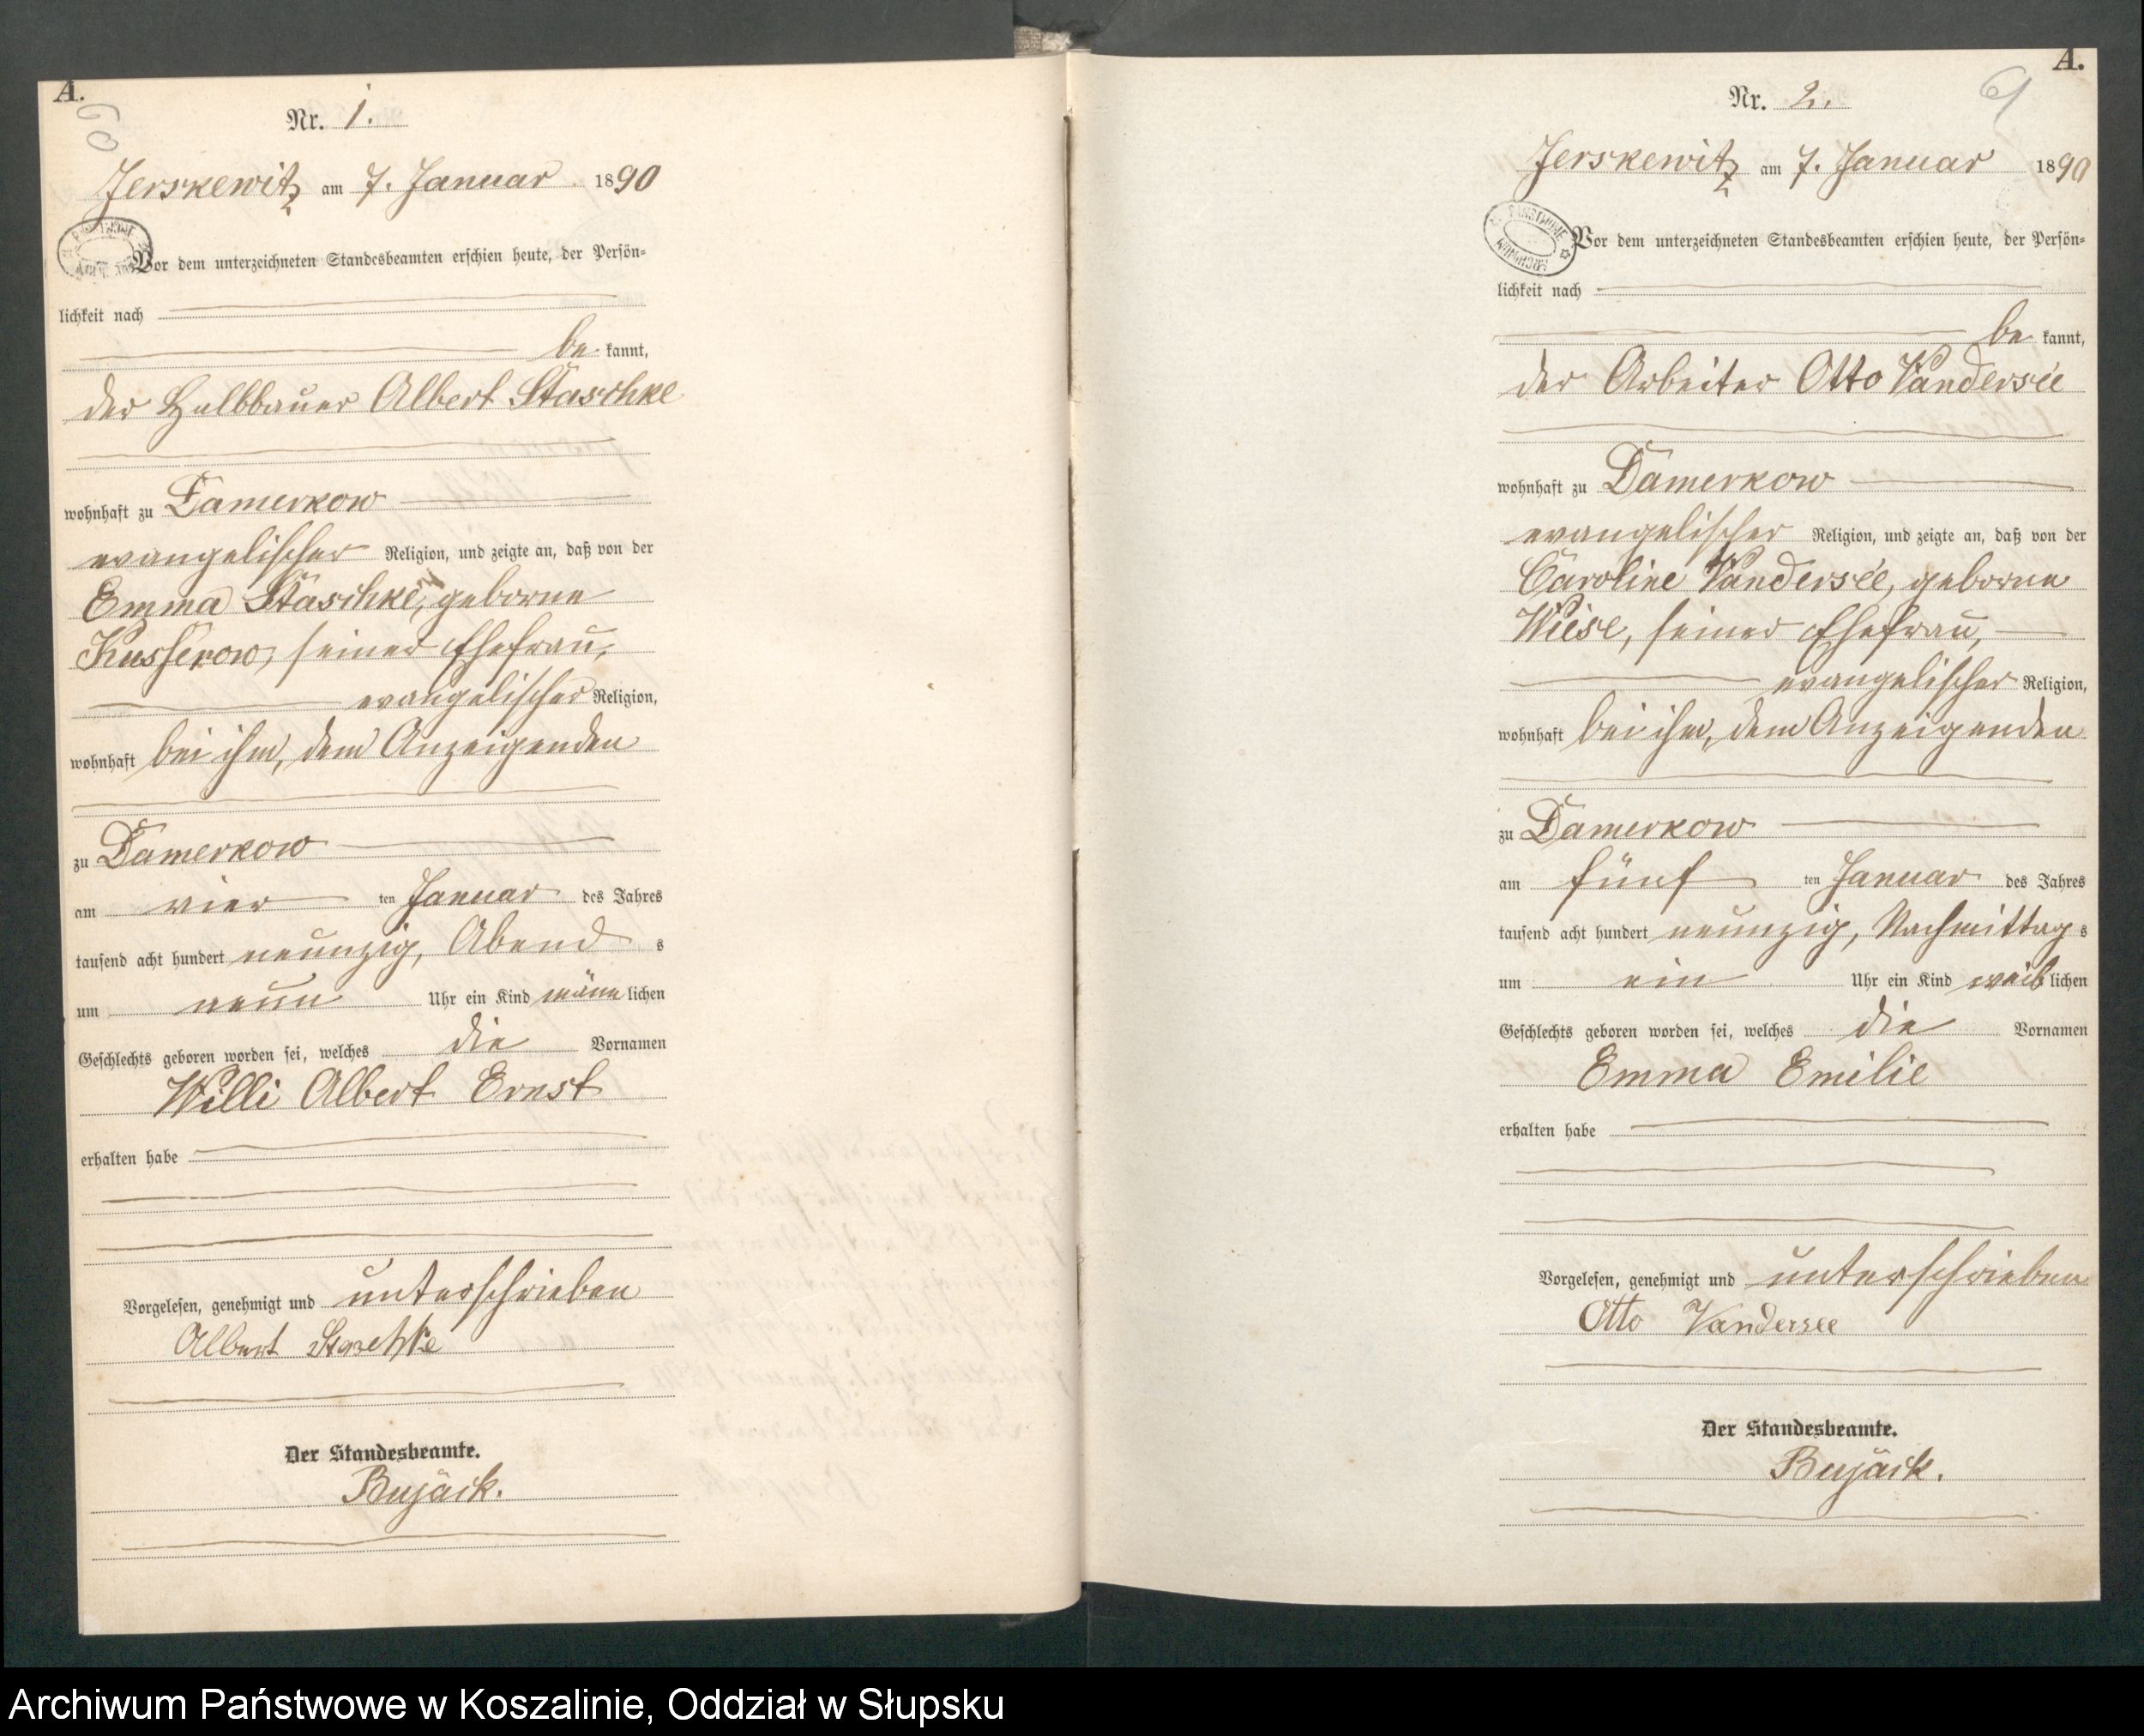 A.
60
Nr. 1.
Jerskewitz am 7. Januar 1890
Vor dem unterzeichneten Standesbeamten erschien heute, der Persön-
lichkeit nach
be kannt,
der Halbbauer Albert Staschke
wohnhaft zu Damerkow
evangelischer Religion, und zeigte an, daß von der
Emma Staschke, geborne
Kusserow, seiner Ehefrau,
evangelischer Religion,
wohnhaft bei ihm, dem Anzeigenden
zu Damerkow
am vier ten Januar des Jahres
tausend acht hundert neunzig, Abend s
um neun Uhr ein Kind männ lichen
Geschlechts geboren worden sei, welches die Vornamen
Willi Albert Ernst
erhalten habe
Vorgelesen, genehmigt und unterschrieben
Albert Staschke
Der Standesbeamte.
Bujäck.
A.
61
Nr. 2.
Jerskewitz am 7. Januar 1890
PAŃSTWOWE
ARCHIWUM
Vor dem unterzeichneten Standesbeamten erschien heute, der Persön-
lichkeit nach
be kannt,
der Arbeiter Otto Vandersee
wohnhaft zu Damerkow
evangelischer Religion, und zeigte an, daß von der
Caroline Vandersee, geborne
Wiese, seiner Ehefrau,
evangelischer Religion,
wohnhaft bei ihm, dem Anzeigenden
zu Damerkow
am fünf ten Januar des Jahres
tausend acht hundert neunzig, Nachmittag s
um ein Uhr ein Kind weib lichen
Geschlechts geboren worden sei, welches die Vornamen
Emma Emilie
erhalten habe
Vorgelesen, genehmigt und unterschrieben
Otto Vandersee
Der Standesbeamte.
Bujäck.
Archiwum Państwowe w Koszalinie, Oddział w Słupsku